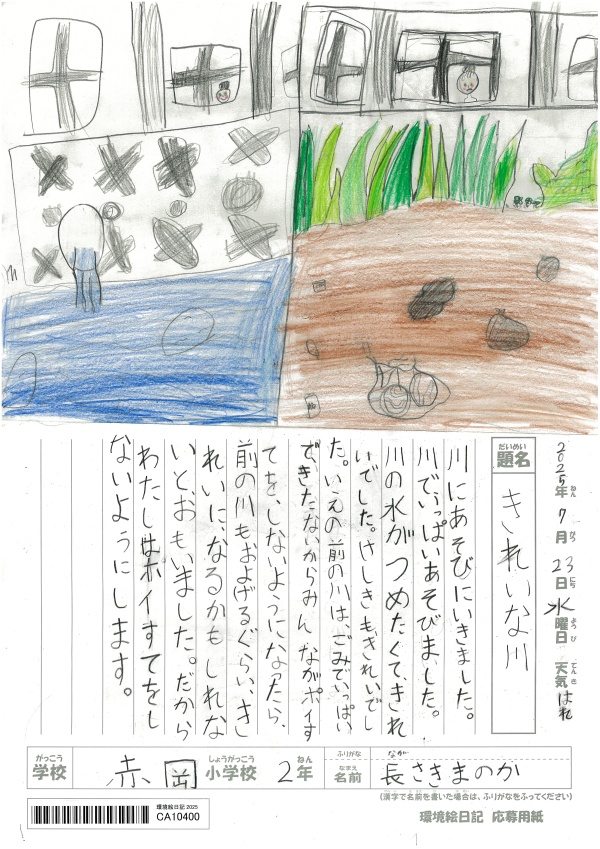 2025年 7月 23日 水曜日 天気 はれ
ねん がつ にち ようび てんき
だいめい
題名
きれいな川
川にあそびにいきました。
川でいっぱいあそびました。
川の水がつめたくて、きれ
いでした。けしきもきれいでし
た。いえの前の川は、ごみでいっぱい
で、きたないからみんながポイす
てを、しないようになったら、
前の川もおよげるぐらい、き
れいに、なるかもしれな
いとおもいました。だから
わたしはポイすてをし
ないようにします。
がっこう
学校
赤岡
しょうがっこう
小学校
2年
ねん
ふりがな
なが
なまえ
名前
長さきまのか
(漢字で名前を書いた場合は、ふりがなをふってください)
環境絵日記 2025
CA10400
環境絵日記 応募用紙